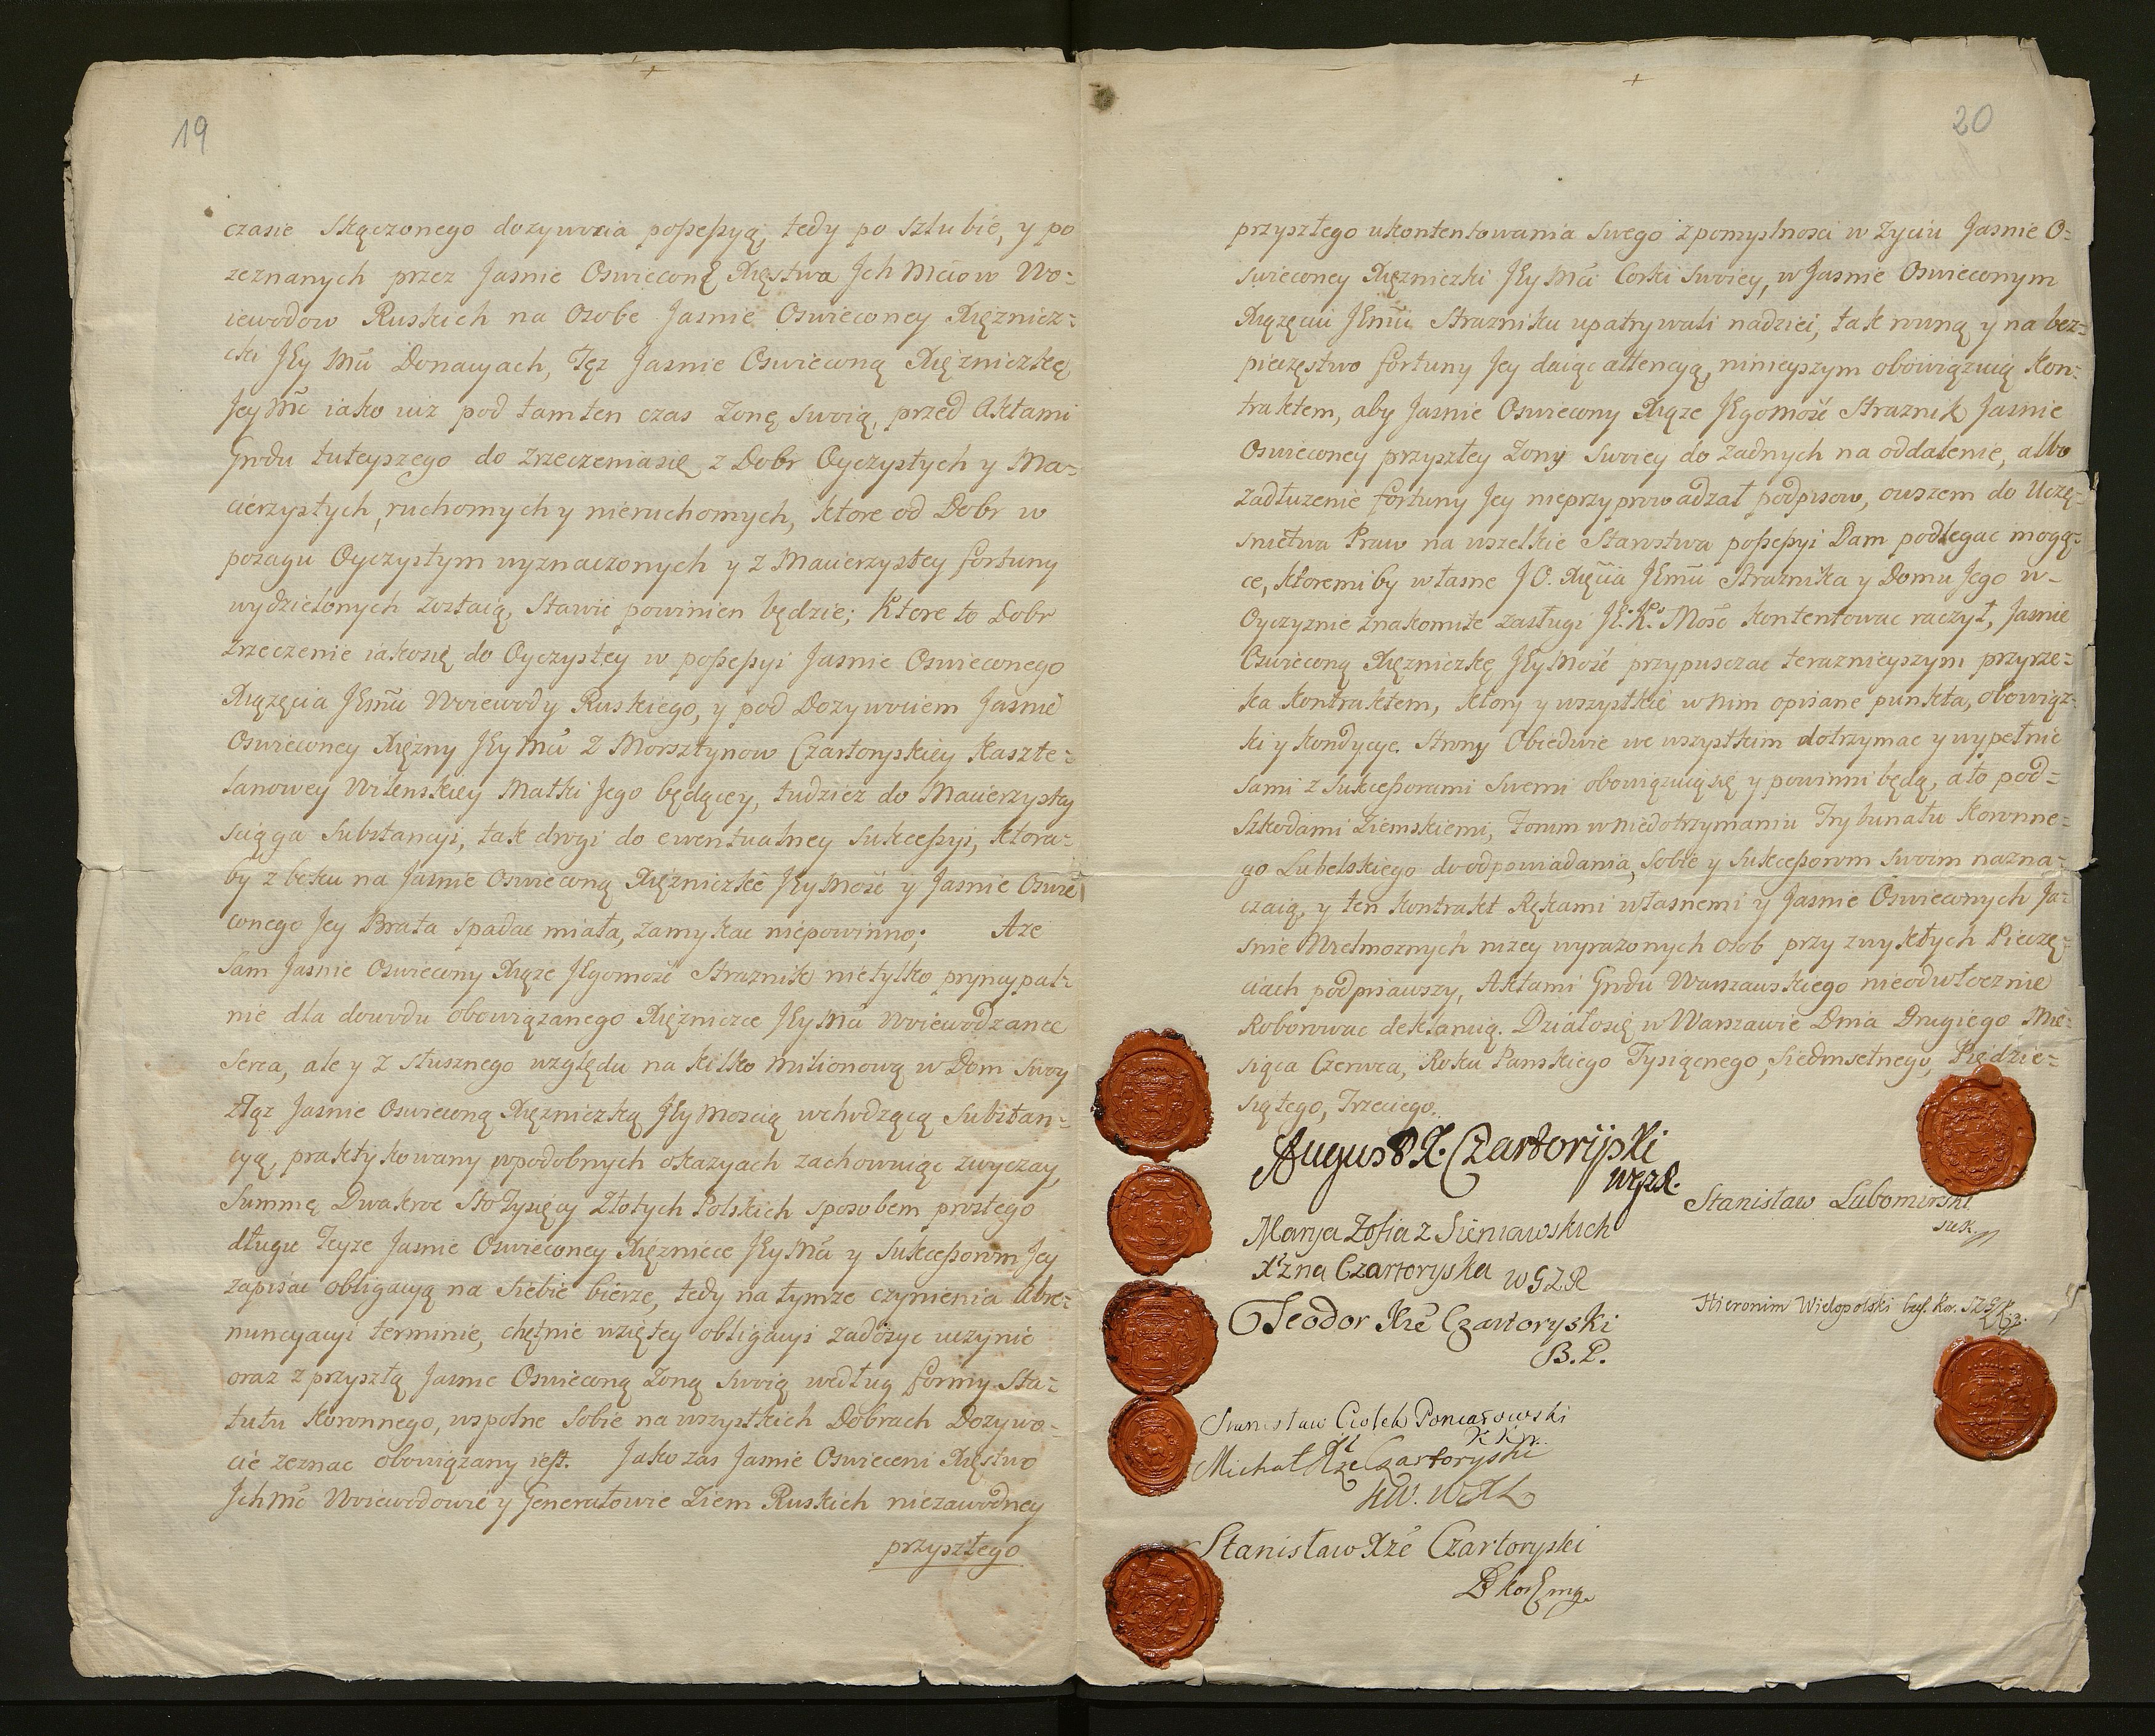 19
czasie skączonego dozywocia possessyą, tedy po szlubie, y po
zeznanych przez Jasnie Oswiecone Xięstwa Jch Mciow Wo-
iewodow Ruskich na Osobe Jasnie Oswieconey Xięznicz-
cki Jey Mci Donacyach, Tęz Jasnie Oswieconą Xięzniczkę
Jey Mć iako iuz pod tamten czas Zonę swoią, przed Aktami
Grodu tuteyszego do zrzeczenia się z Dobr Oyczystych y Ma-
cierzystych, ruchomych y nieruchomych, ktore od Dobr w
posagu Oyczystym wyznaczonych y z Macierzystey fortuny
wydzielonych zostaią, stawić powinien będzie; Ktore to Dobr
zrzeczenie iako się do Oyczystey w possessyi Jasnie Oswieconego
Xiązęcia Jmci Woiewody Ruskiego, y pod Dozywociem Jasnie
Oswieconey Xięzny Jey Mci z Morsztynow Czartoryskiey Kaszte-
lanowey Wilenskiey Matki Jego będącey, tudziez do Macierzystey
sciąga substancyi, tak drogi do ewentualney sukcessyi, ktora-
by z boku na Jasnie Oswieconą Xięzniczkę Jey Mość y Jasnie Oswie
conego Jey Brata spadac miała, zamykac niepowinno; A ze
Sam Jasnie Oswiecony Xiąze Jegomość Straznik nietylko pryncypal-
nie dla dowodu obowiązanego Xięzniczce Jey Mci Woiewodzance
Serca, ale y z słusznego względu na kilko milionową w Dom swoy
z Tąz Jasnie Oswieconą Xięzniczką Jey Moscią wchodzącą substan-
cyą, praktykowany w podobnych okazyach zachowuiąc zwyczay,
Summę Dwakroc Sto Tysięcy Złotych Polskich sposobem prostego
długu Teyze Jasnie Oswieconey Xięznicce Jey Mci y Sukcessorom Jey
zapisac obligacyą na siebie bierze, tedy na tymze czynienia Abre-
nuncyacyi terminie, chętnie wziętey obligacyi zadosyc uczynic
oraz z przyszłą Jasnie Oswieconą Zoną swoią według formy Sta-
tutu Koronnego, wspolne sobie na wszystkich Dobrach Dozywo-
cie zeznac obowiązany iest. Jako zas Jasnie Oswieceni Xięstwo
Jch Mć Woiewodowie y Generałowie Ziem Ruskich niezawodney
przyszłego
20
przyszłego ukontentowania swego z pomyslnosci w zyciu Jasnie O-
swieconey Xięzniczki Jey Mci Corki swoiey, w Jasnie Oswieconym
Xiązęciu Jmci Strazniku upatrywali nadziei, tak rowną y na bez-
pieczęstwo fortuny Jey daiąc attencyą, nineyszym obowiązuią kon-
traktem, aby Jasnie Oswiecony Xiąze Jegomość Straznik Jasnie
Oswieconey przyszłey Zony swoiey do zadnych na oddalenie, albo
zadłuzenie fortuny Jey nieprzyprowadzał podpisow, owszem do Uczę-
snictwa Praw na wszelkie Starostwa possessyi Dam podlegac mogą-
ce, ktoremi by własne J O. Xięcia Jmci Straznika y Domu Jego w-
Oyczyznie znakomite zasługi J. K. Mość kontentowac raczył, Jasnie
Oswieconą Xięzniczkę Jey Mość przypusczac teraznieyszym przyrze-
ka kontraktem, ktory y wszystkie w nim opisane punkta, obowiąz-
ki y kondycye. Strony Obiedwie we wszystkim dotrzymac y wypełnic
sami z sukcessorami swemi obowiązuią się y powinni będą, a to pod-
szkodami ziemskiemi, Forum w niedotrzymaniu Trybunału Koronne-
go Lubelskiego do odpowiadania, sobie y sukcessorom swoim nazna-
czaią, y ten kontrakt Rękami własnemi y Jasnie Oswieconych Ja-
snie Wielmoznych nizey wyrazonych osob przy zwykłych Pieczę-
ciach podpisawszy, Aktami Grodu Warszawskiego nieodwłocznie
Roborowac deklaruią. Działo się w Warszawie Dnia Drugiego Mie-
siąca Czerwca, Roku Panskiego Tysiącnego, Siedmsetnego, Pięćdzie-
siątego, Trzeciego.
August X. Czartoryski
WGZR.
Stanisław Lubomirski
Marya Zofia z Sieniawskich
Xżna Czartoryska WGZR
Hieronim Wielopolski
Teodor Xże Czartoryski
B. P.
Stanisław Ciołek Poniatowski
K K.
Michał Xże Czartoryski
Stanisław Xże Czartoryski